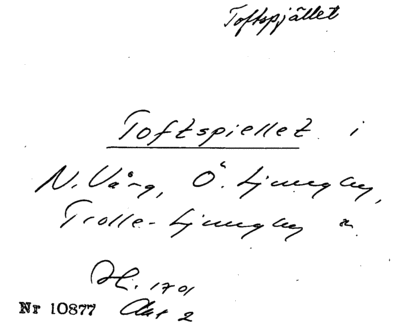 Toftspjället
Toftspiellet i
N. Vång, Ö. Ljungby,
Trolle-Ljungby
H. 1701
Nr 10877 Akt 2